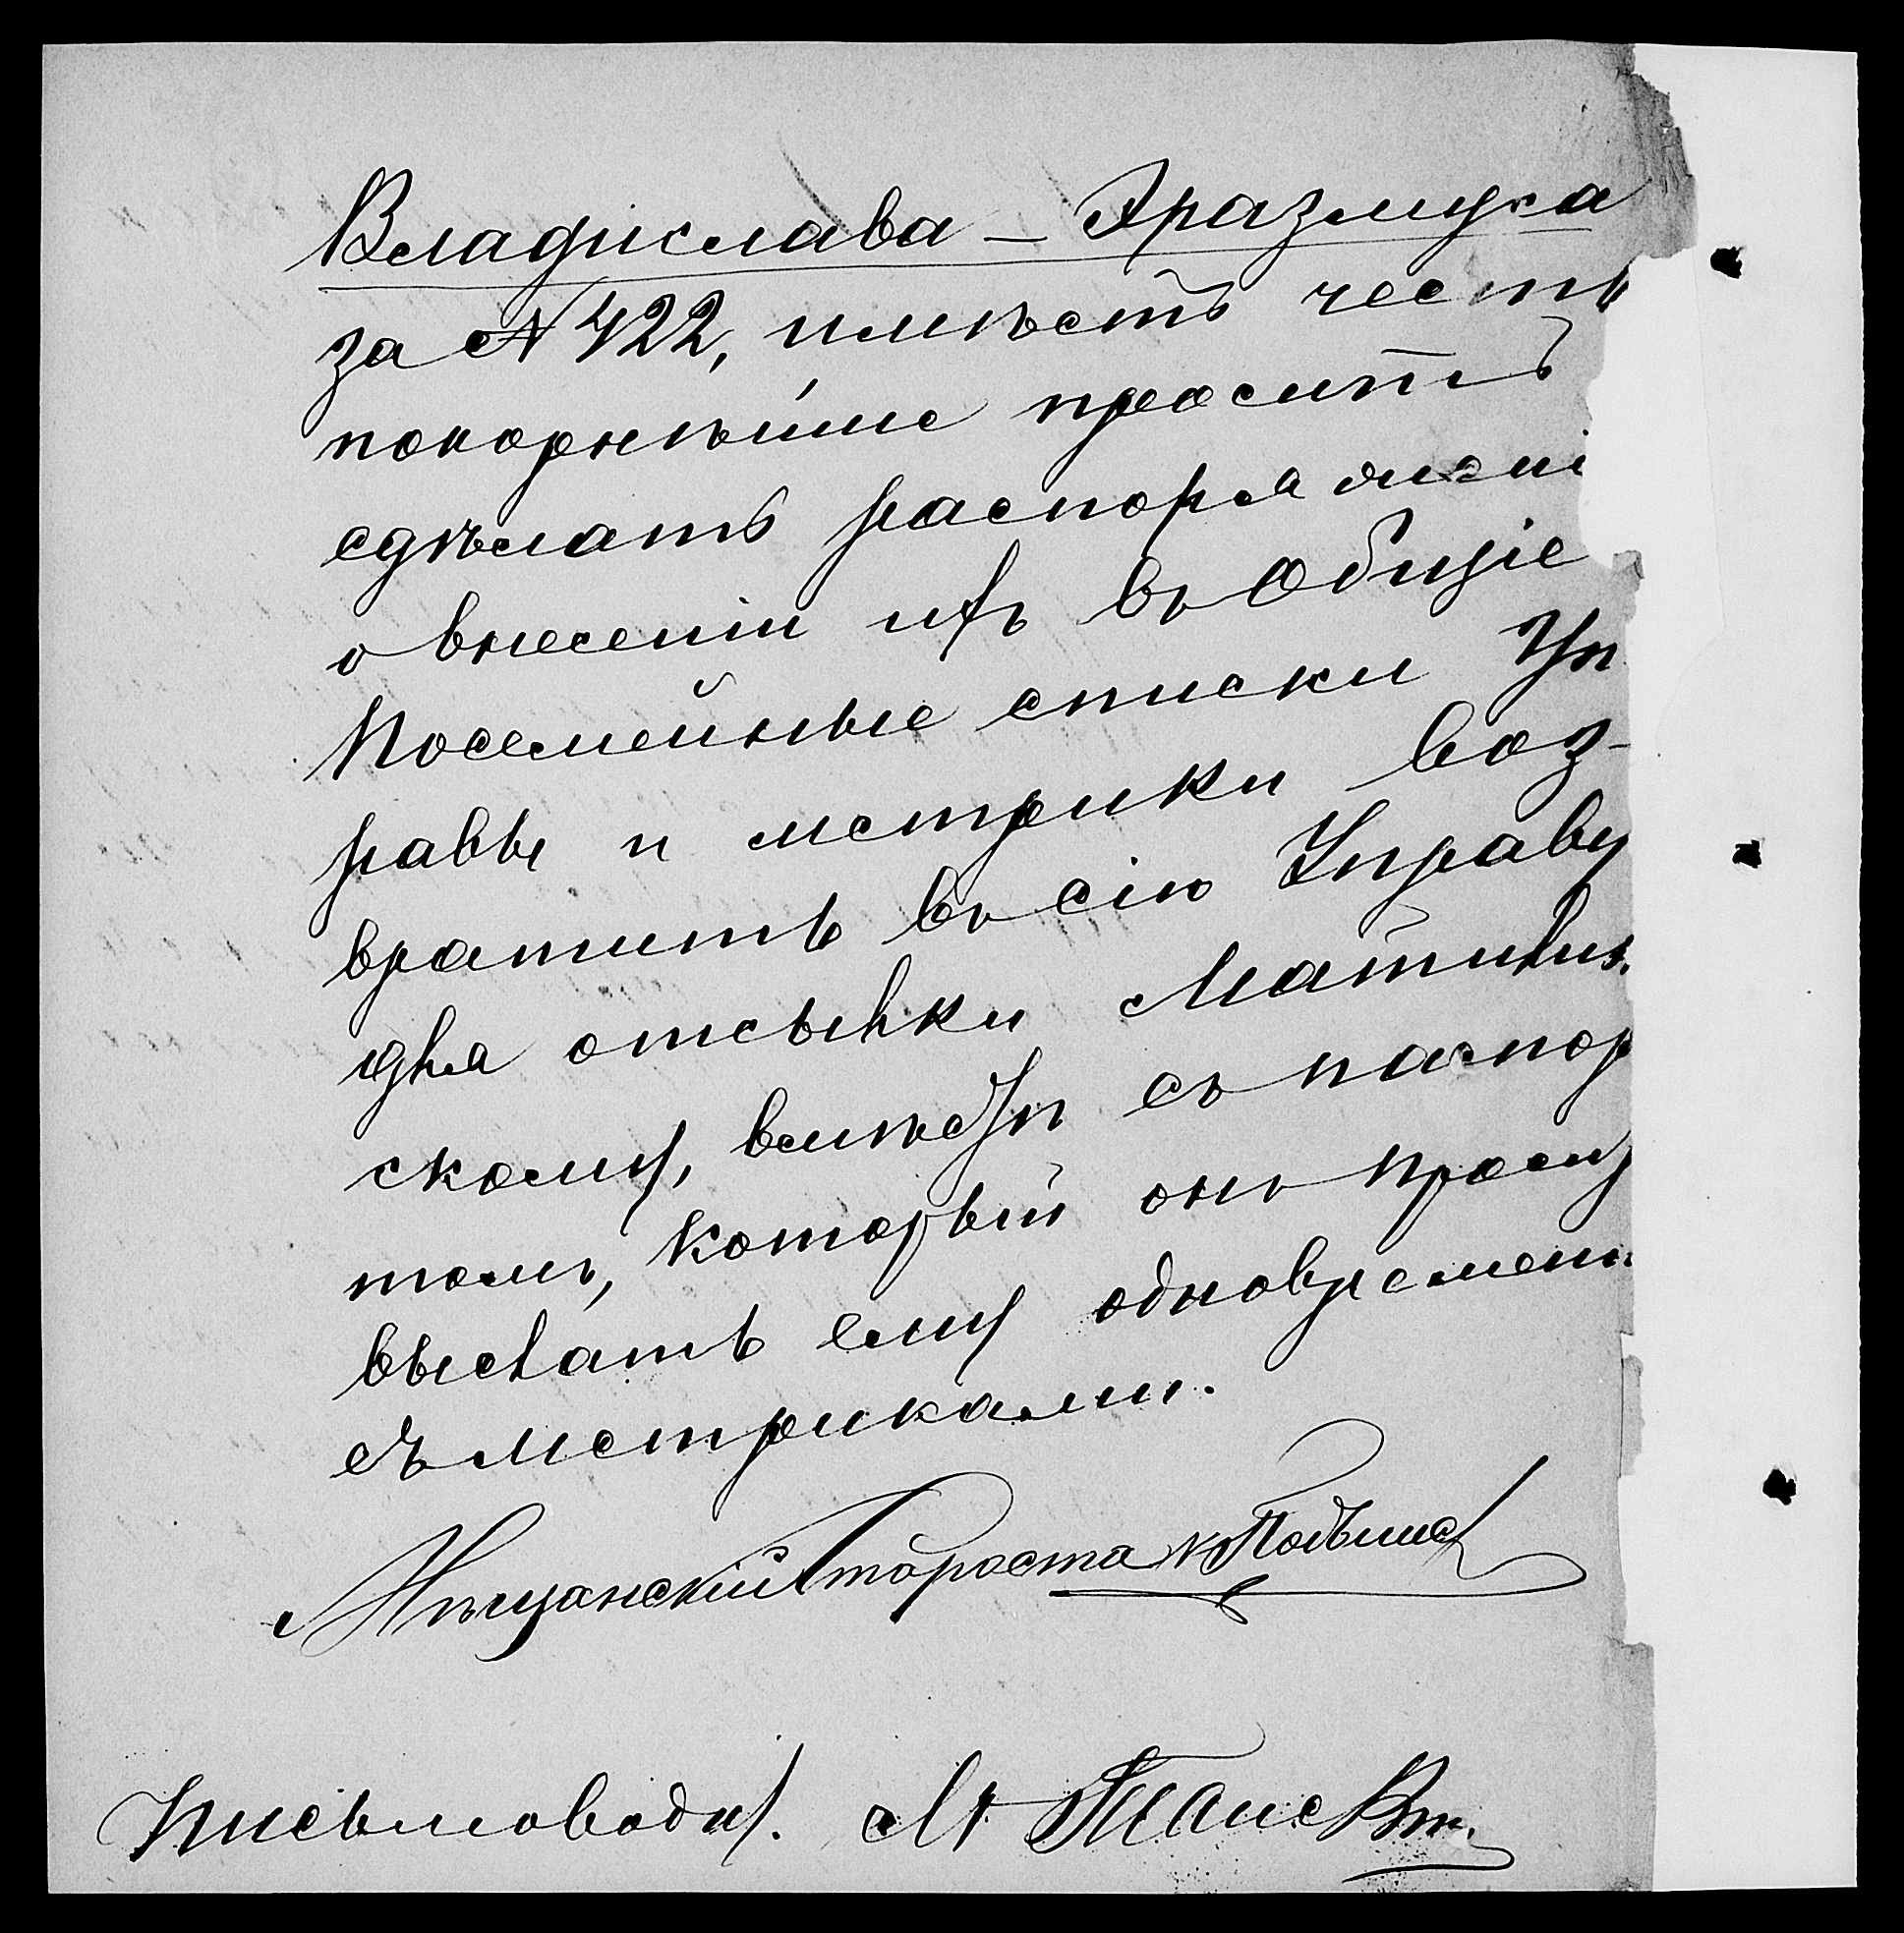 Владислава – Эразмуса
за № 422, имѣетъ честь
покорнѣйше проситъ
сдѣлать распоряжені
о внесеніи ихъ въ Общіе
Посемейные списки Уп
равы и метрики воз-
вратить въ сію Управу
для отсылки
скому, вмѣстѣ съ паспор
томъ, который онъ проси
выслать ему одновременн
съ метриками.
Мѣщанскій Староста
Письмовод.